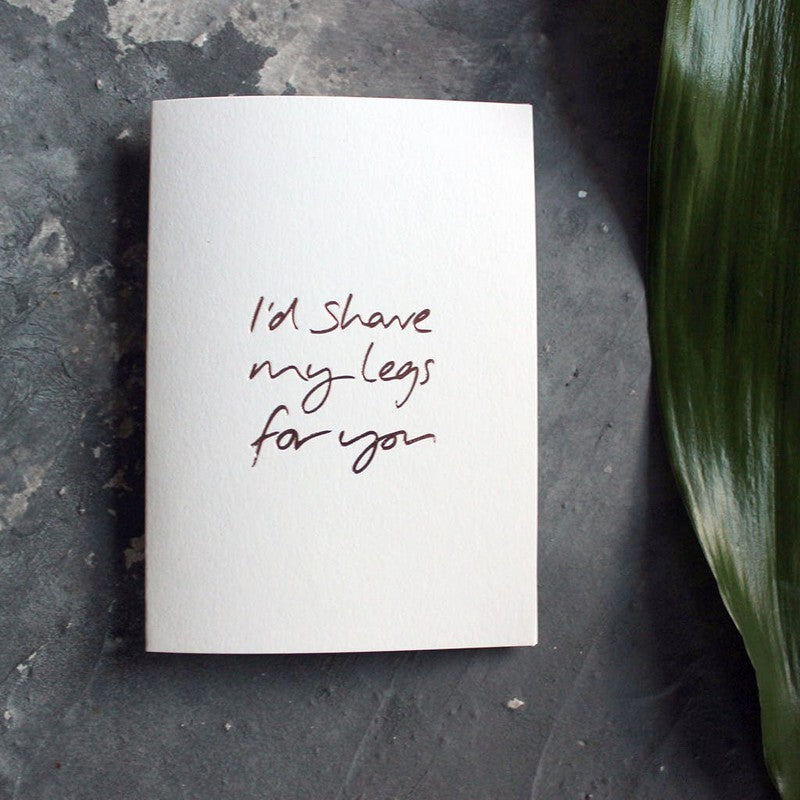 I'd shave
my legs
for you